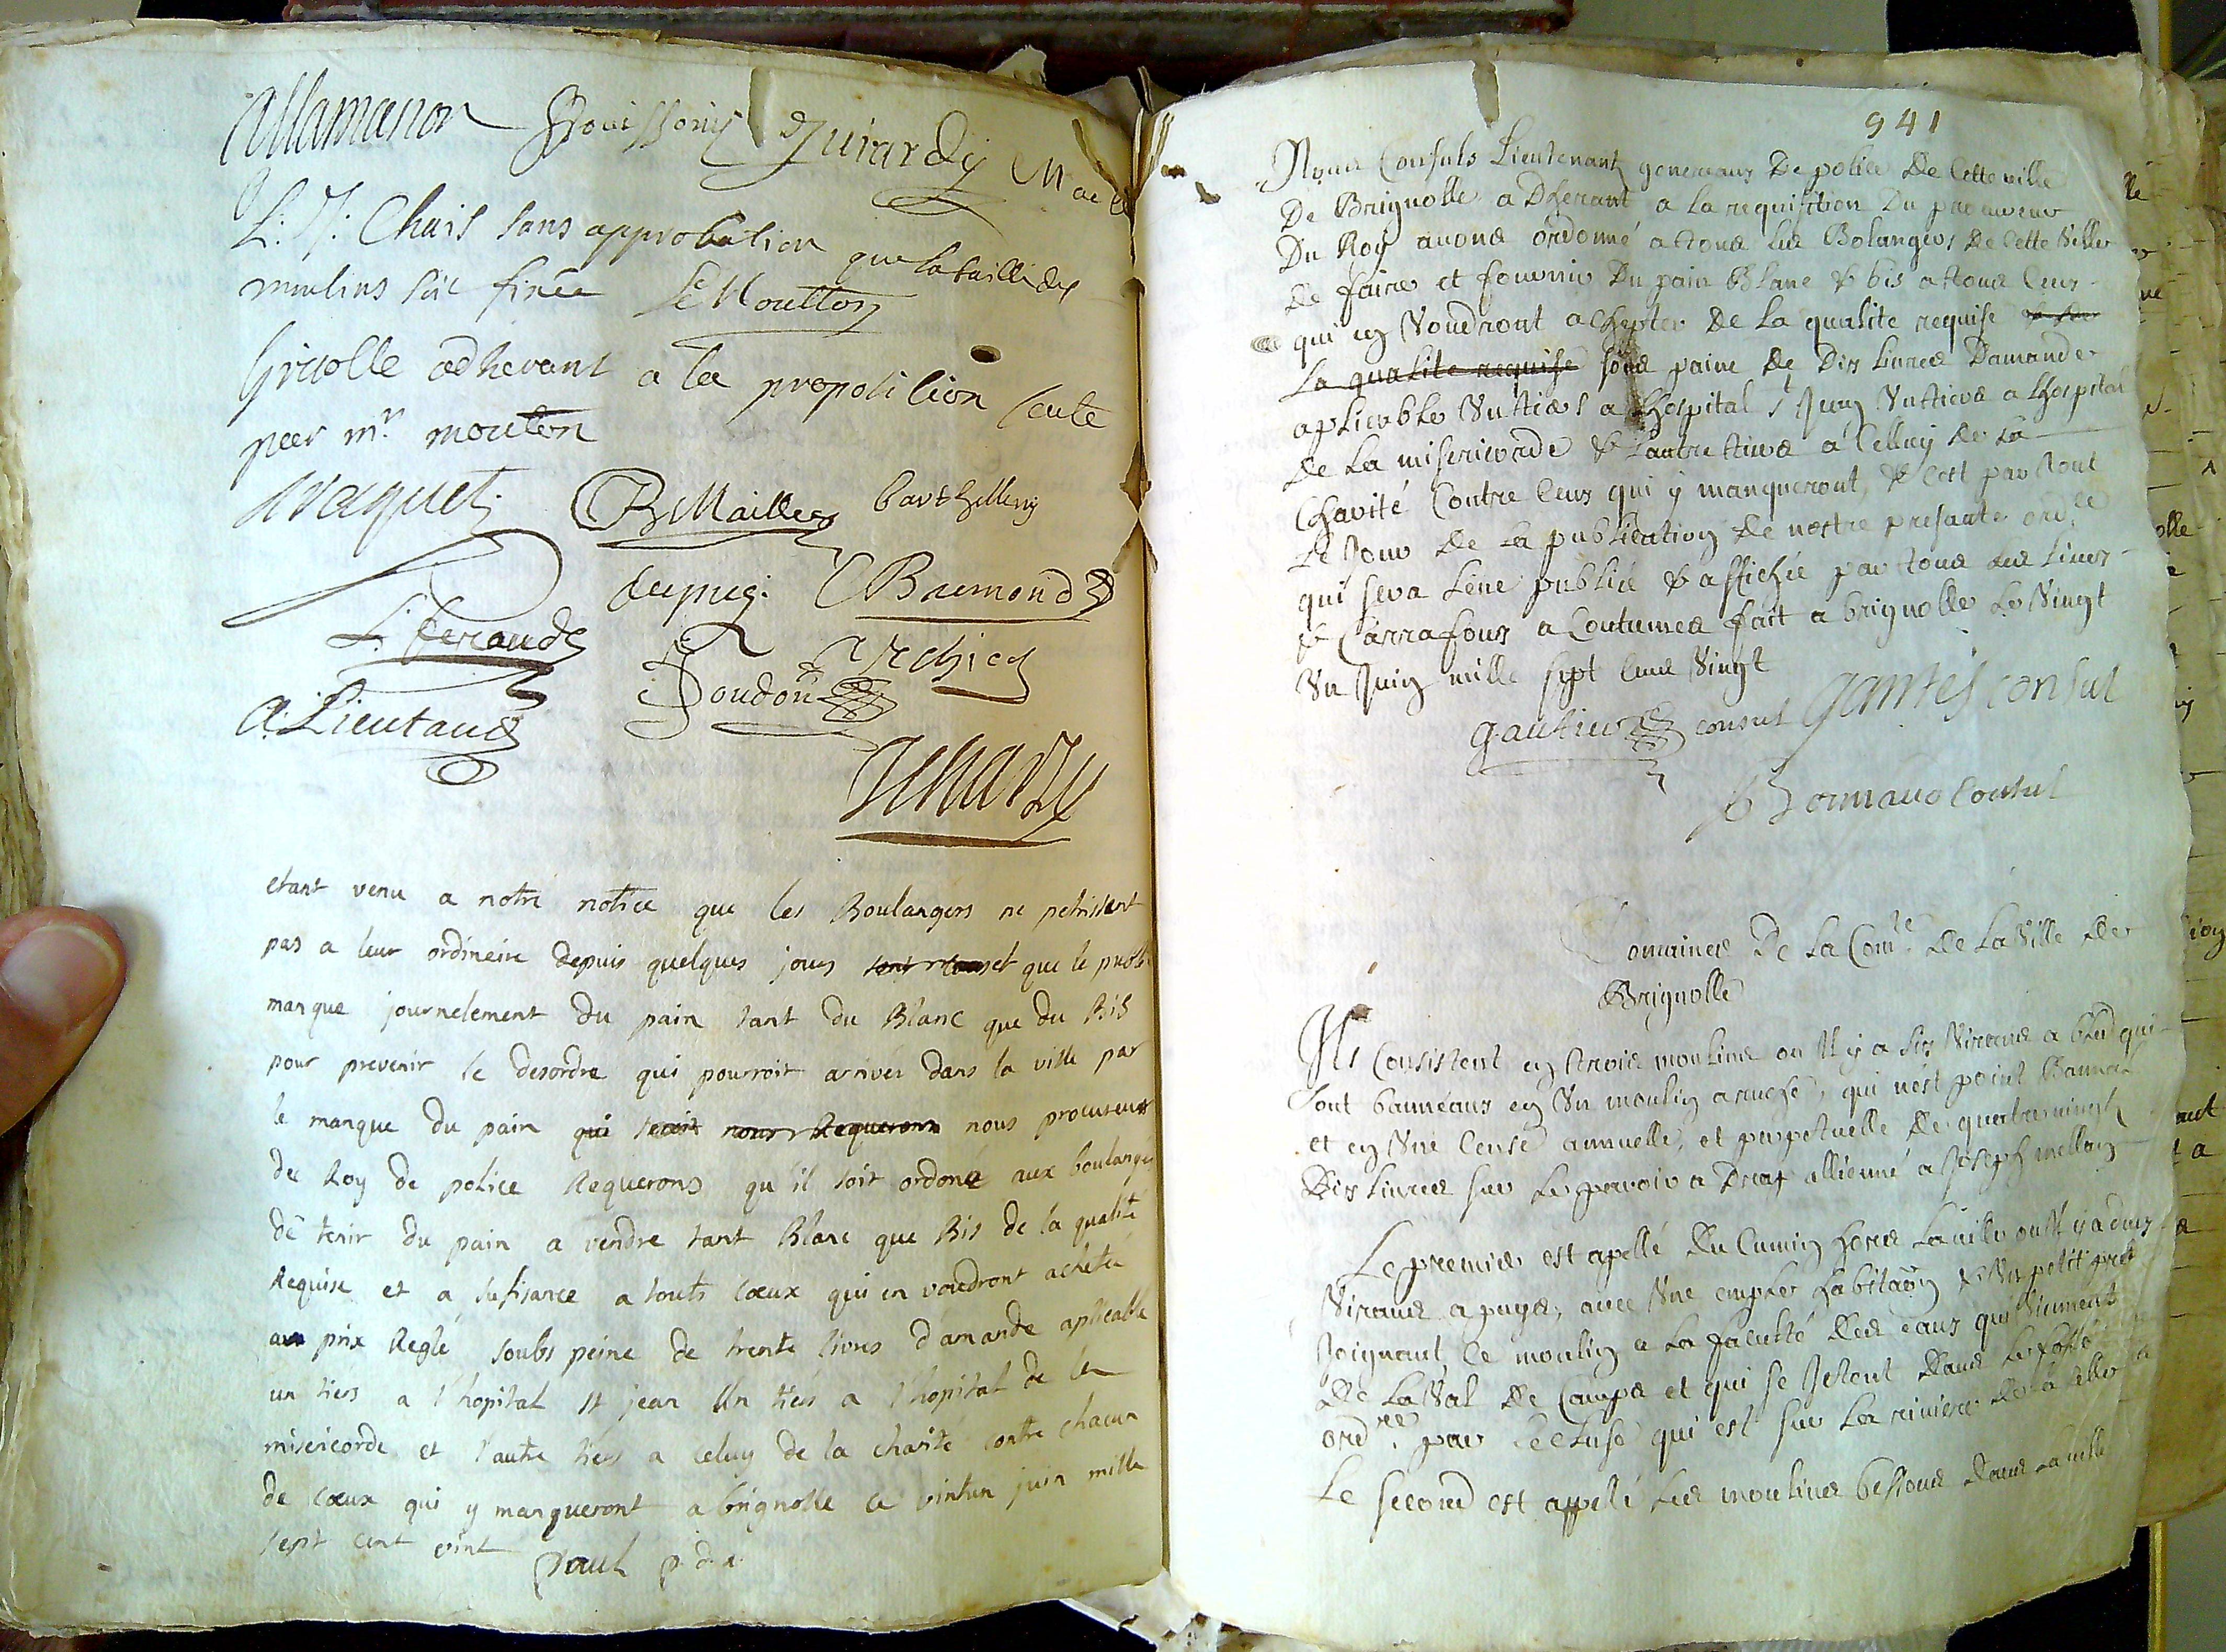 Allamanon Bouissony Guirardy
L: J: Chais sans approbation que la taille des
moulins soit fixée Le Moutton
Griolle adherant a la proposition
par mr. mouton
Braquety B Mailles barthellemy
dupuy: Bremond
L. feraud
Boudon
A: Lieutaud
etant venu a notre notice que les Boulangers ne petrissent
pas a leur ordineire depuis quelques jours et que le public
manque journelement du pain tant du Blanc que du Bis
pour prevenir le desordre qui pourroit arriver dans la ville par
le manque du pain qui seroit nous Requerons nous procureur
de Roy de police Requerons qu'il soit ordoné aux boulangers
de tenir du pain a vendre tant Blanc que Bis de la qualité
Requise et a sufisance a touts cœux qui en voudront acheter
au prix Reglé soubs peine de trente livres d'amande aplicable
un tiers a l'hopital st jean un tiers a l'hopital de la
misericorde et l'autre tiers a celuy de la charité contre chacun
de cœux qui y manqueront a brignolle ce vintun juin mille
sept cent vint Paul p. d. r.
941
Nous Consuls Lieutenants generaux De police De Cette ville
De Brignolle a Dherant a la requisition Du procureur
Du Roy avons ordonné a tous les Bolangers De Cette Ville
De faire et fournir Du pain Blanc & bis a tous Ceux
qui en Voudront achepter De La qualite requise
La qualite requise sous paine De Dix Livres Damande
aplicable Un tiers a Lhospital St Jean Un tiers a Lhospital
De La misericorde & Lautre tiers a Celluy De La
Charité Contre Ceux qui y manqueront, & Cest par tout
Le Jour De La publication De nostre presante ordce
qui sera Leue publiée & affichée par tous Les Lieux
& Carrafours a Coutumes fait a brignolle Le Vingt
Un Juin mille sept Cens Vingt
gautier consul gantes consul
Consul
Domaines De La Comte De La Ville De
Brignolle
Ils Consistent en trois moulins ou Il y a six Virans a bled qui
sont banneaux en Un moulin a ruche, qui n'est point Bannal
et en Une Cense annuelle, et perpetuelle De quatrevingt
Dix Livres sur Le paroir a Drap allienné a Joseph mellan
Le premier est apellé Du Cumin hors La ville ou Il y a deux
Virans a puya, avec Une emple habitaõn & Un petit pred
Joignant, Ce moulin a La faculté Des eaux qui Viennent
De La Val De Camps et qui se Jetent Dans Le fossé
ordre par Lecluse qui est sur La riviere De La Celle
Le second est appellé Les moulins bessons Dans La ville